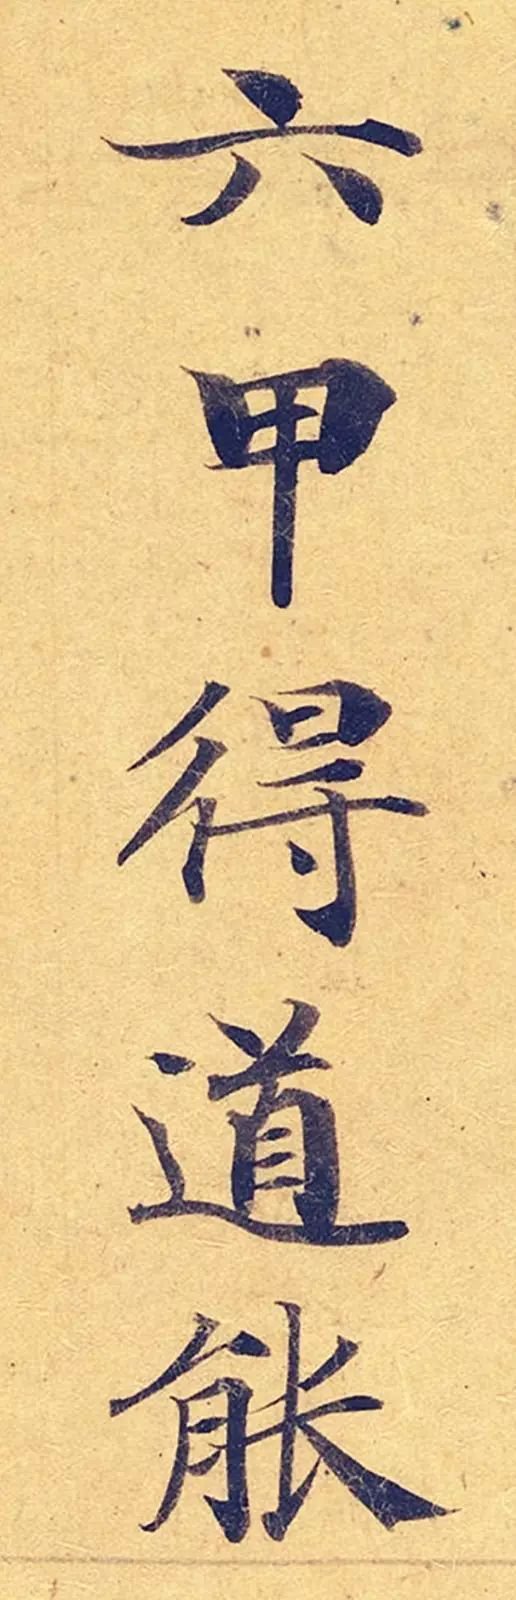 六甲得道能